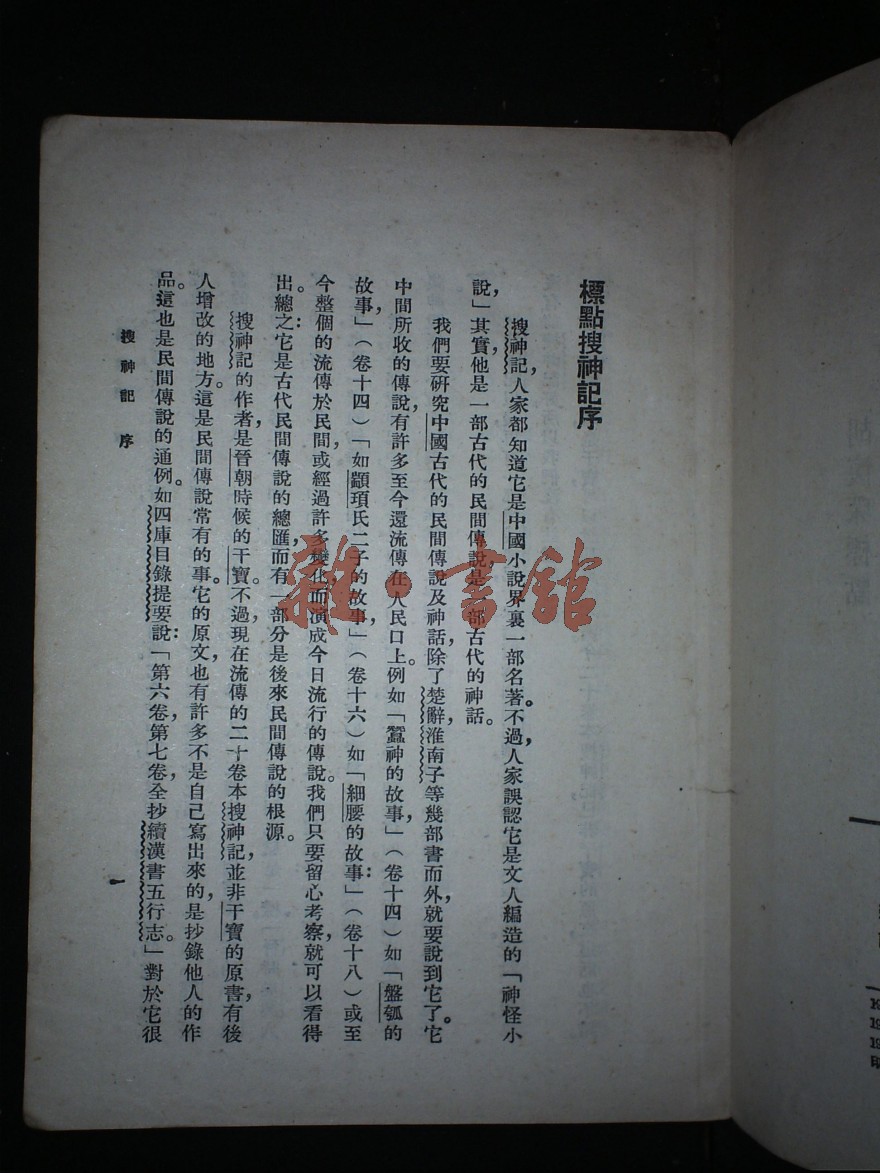 標點搜神記序
搜神記,人家都知道它是中國小說界裏一部名著。不過,人家誤認它是文人編造的「神怪小
說,」其實他是一部古代的民間傳說,是一部古代的神話。
我們要研究中國古代的民間傳說及神話,除了楚辭,淮南子等幾部書而外,就要說到它了。它
中間所收的傳說,有許多至今還流傳在人民口上。例如「蠶神的故事,」(卷十四)如「盤瓠的
故事,」(卷十四)「如顓頊氏二子的故事,」(卷十六)如「細腰的故事:」(卷十八)或至
今整個的流傳於民間,或經過許多變化,而演成今日流行的傳說。我們只要留心考察,就可以看得
出。總之:它是古代民間傳說的總匯,而有一部分是後來民間傳說的根源。
搜神記的作者,是晉朝時候的干寶。不過現在流傳的二十卷本搜神記,並非干寶的原書,有後
人增改的地方。這是民間傳說常有的事。它的原文也有許多不是自己寫出來的,是抄錄他人的作
品。這也是民間傳說的通例。如四庫目錄提要說:「第六卷,第七卷,全抄續漢書五行志。」對於它很
搜神記 序
一
雜·書館